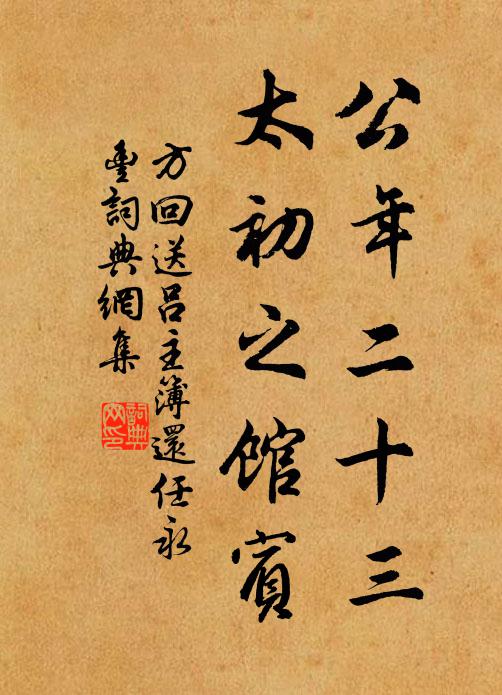 公年二十三
太初之館賓
方回送呂主簿還任永
豐詞典網集
詞典
网印